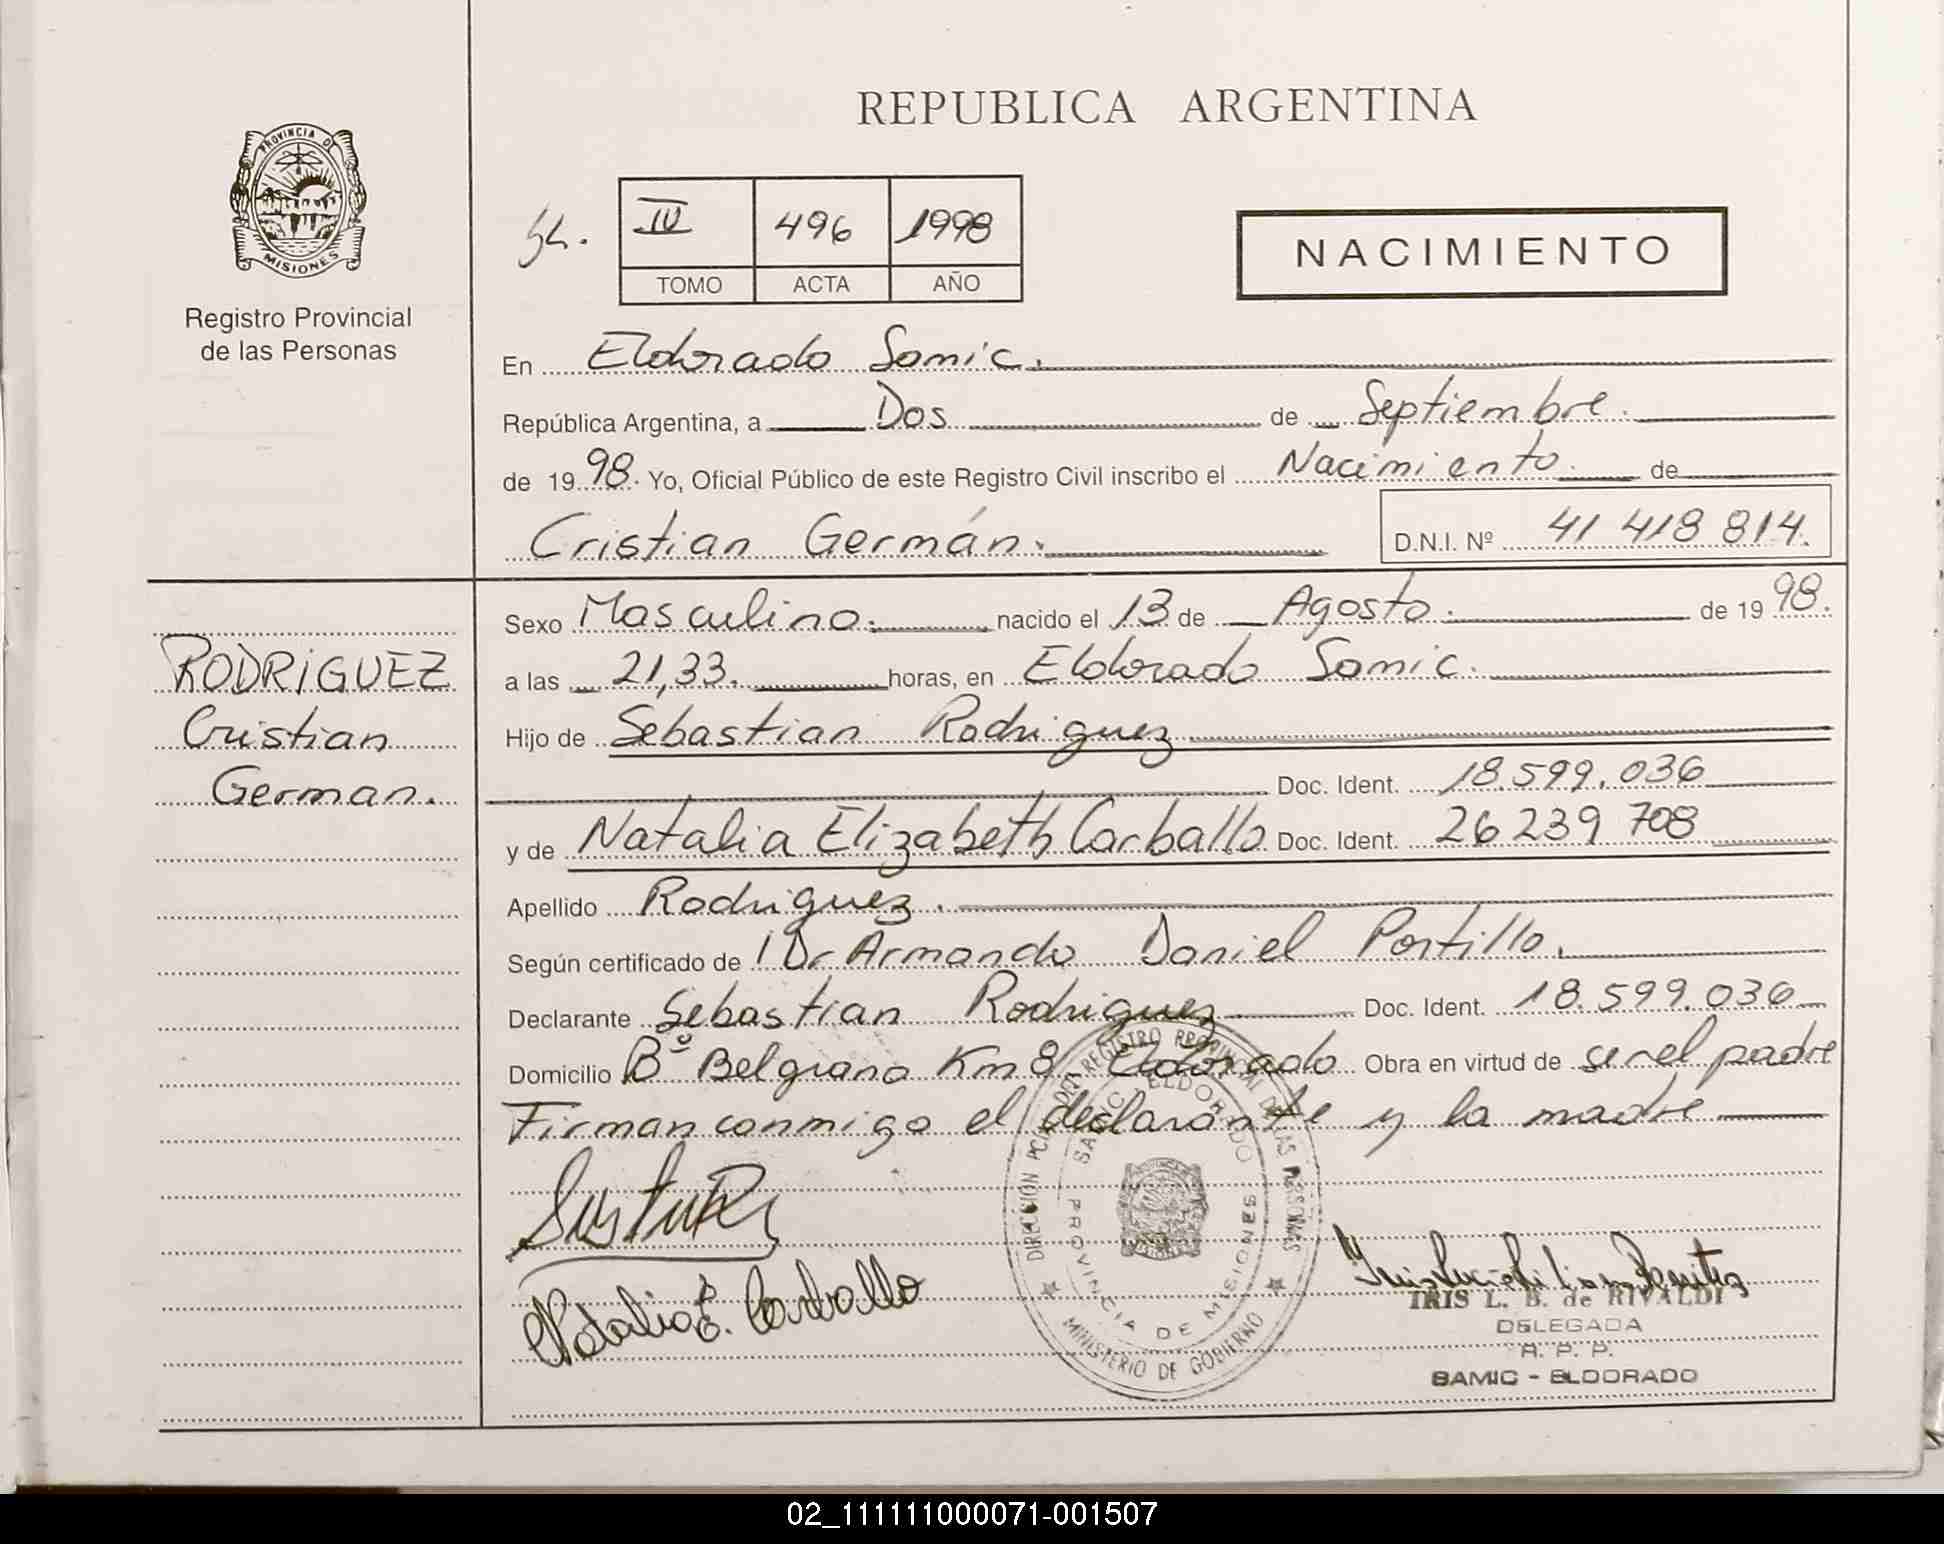 REPUBLICA ARGENTINA
PROVINCIA DE
MISIONES
Registro Provincial
de las Personas
IV 496 1998
TOMO ACTA AÑO
NACIMIENTO
En Eldorado Samic.
República Argentina, a Dos de Septiembre.
de 1998. Yo, Oficial Público de este Registro Civil inscribo el Nacimiento. de
Cristian Germán. D.N.I. Nº 41 418 814.
RODRIGUEZ
Cristian
German.
Sexo Masculino. nacido el 13 de Agosto. de 1998.
a las 21,33. horas, en Eldorado Samic.
Hijo de Sebastian Rodriguez
Doc. Ident. 18.599.036
y de Natalia Elizabeth Carballo Doc. Ident. 26 239 708
Apellido Rodriguez.
Según certificado de Dr Armando Daniel Portillo.
Declarante Sebastian Rodriguez Doc. Ident. 18.599.036
Domicilio Bº Belgrano Km 8, Eldorado Obra en virtud de ser el padre
Firman conmigo el declarante y la madre
Natalia E. Carballo
DIRECCIÓN PCIAL. DEL REGISTRO PROVINCIAL DE LAS PERSONAS
SAMIC - ELDORADO
PROVINCIA DE MISIONES
MINISTERIO DE GOBIERNO
IRIS L. B. de RIVALDI
DELEGADA
R. P. P.
SAMIC - ELDORADO
02_111111000071-001507